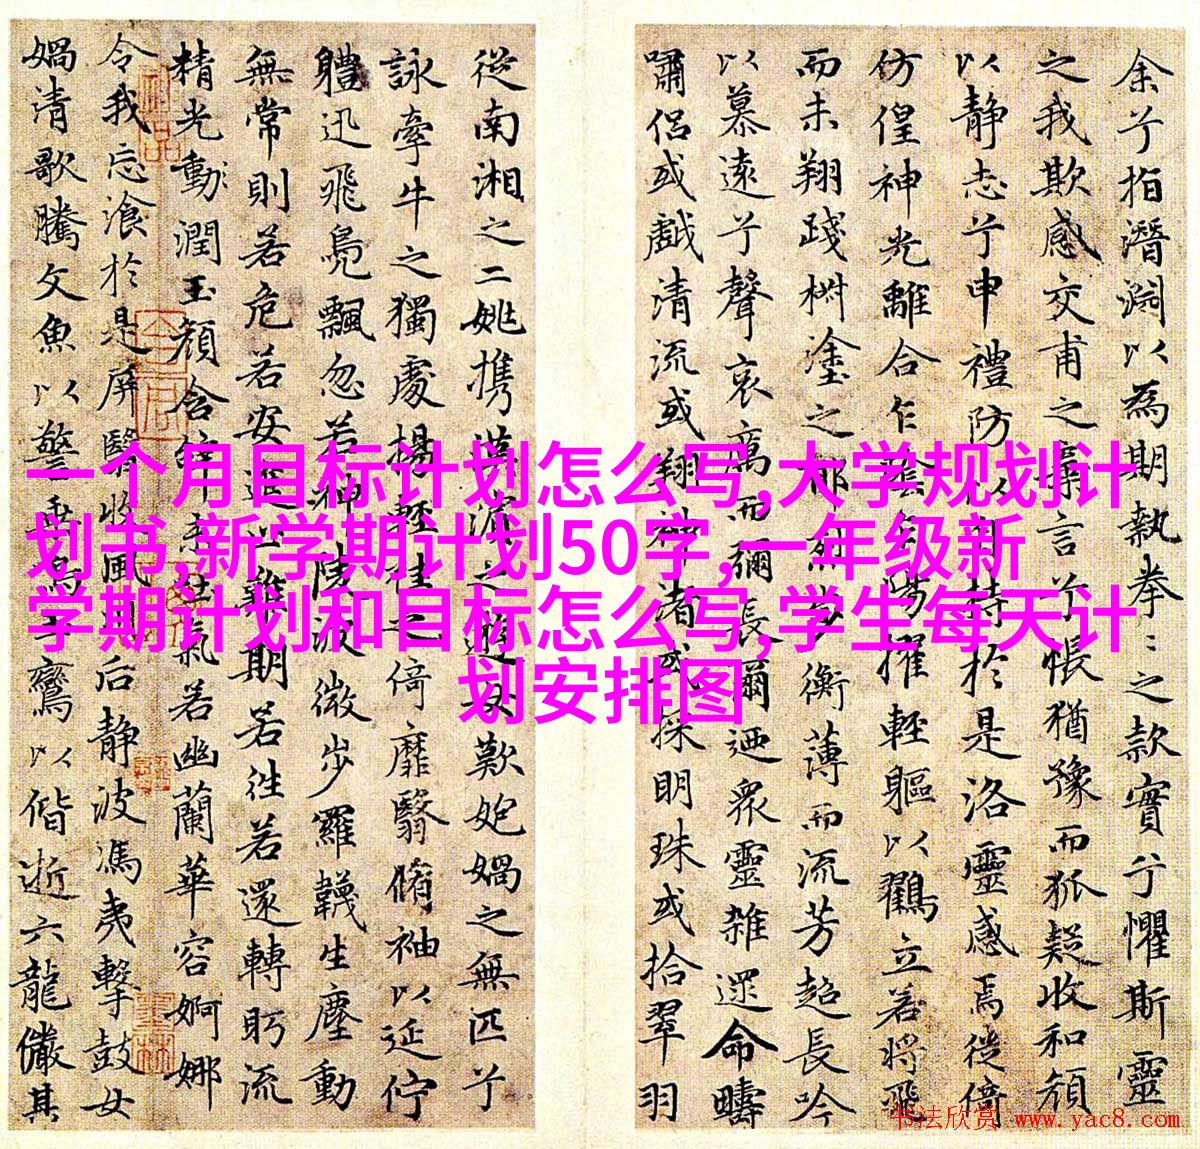 一个月目标计划怎么写,大学规划计
划书,新学期计划50字,一年级新
学期计划和目标怎么写,学生每天计
划安排图
余兮指潛淵以為期執拳〻之款實兮懼斯靈
之我欺感交甫之棄言兮悵猶豫而狐疑收和顔
以静志兮申禮防以自持於是洛靈感焉徙倚
仿偟神光離合乍陰乍陽擢輕軀以鶴立若將飛
而未翔踐椒塗之郁烈步衡薄而流芳超長吟
以慕遠兮聲哀厲而彌長爾迺衆靈雜遝命疇
嘯侣或戲清流或翔神渚或採明珠或拾翠羽
從南湘之二姚攜漢濱之遊女歎匏媧之無匹兮
詠牽牛之獨處揚輕袿之倚靡翳脩袖以延佇
體迅飛鳧飄忽若神陵波微步羅韈生塵動
無常則若危若安進止難期若往若還轉眄流
精光動潤玉顔含辭未吐氣若幽蘭華容婀娜
令我忘飡於是屏翳收風川后静波馮夷擊鼓女
媧清歌騰文魚以警乘鳴玉鸞以偕逝六龍儼其
书法欣赏 www.yac8.com